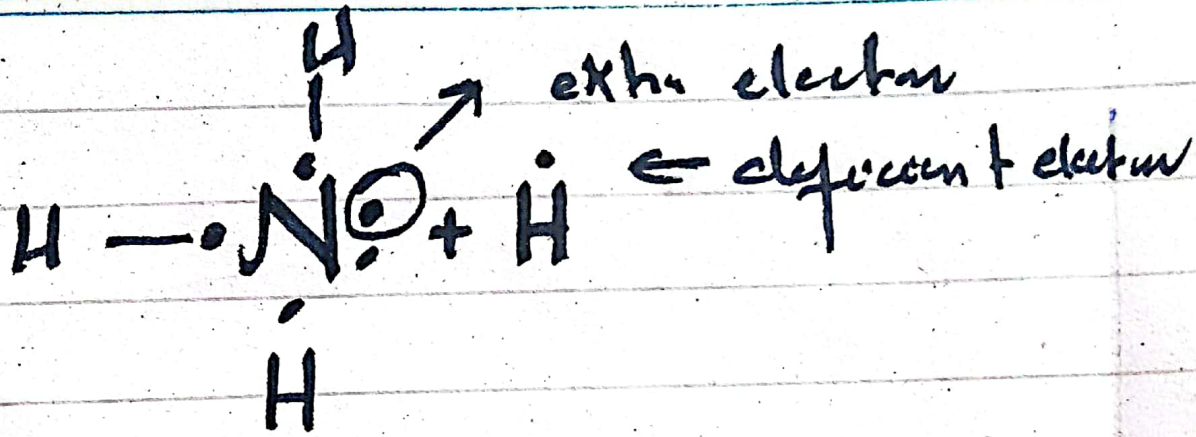 H
extra electron
← deficient electron
H — N + H
H